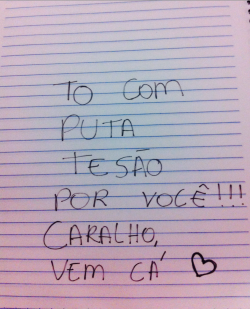 TO COM
PUTA
TESÃO
POR VOCÊ!!!
CARALHO,
VEM CÁ